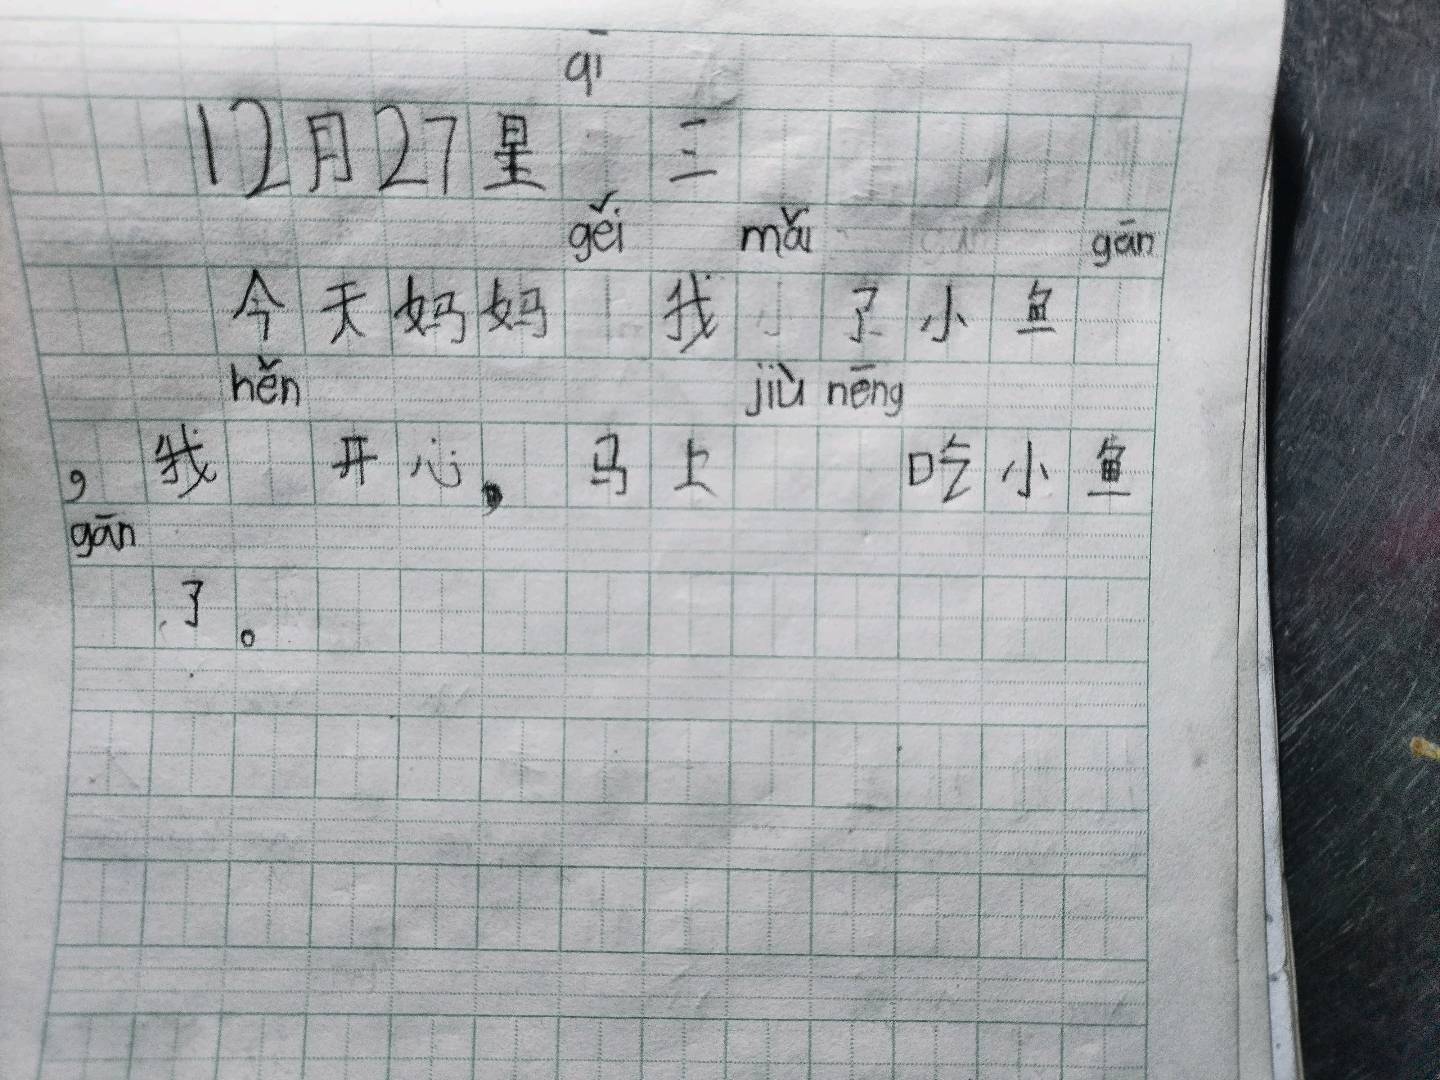 qī
12月27星 三
gěi mǎi gān
今天妈妈 我 了小鱼
hěn jiù nēng
,我 开心,马上 吃小鱼
gān
了。